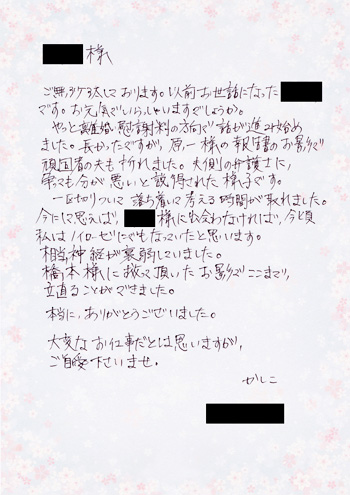 様
ご無沙汰しております。以前お世話になった
です。お元気でいらっしゃいますでしょうか。
やっと離婚、慰謝料の方向で話が進み始め
ました。長かったですが、原一様や報告書のお影で
頑固者の夫も折れました。夫側の弁護士に、
争っても分が悪いと説得された様子です。
一区切りついて落ち着いて考える時間が取れました。
今にして思えば、様に出会わなければ、今頃
私はノイローゼにでもなっていたと思います。
相当神経が衰弱していました。
橋本様に救って頂いたお影でここまで、
立直ることができました。
本当に、ありがとうございました。
大変なお仕事だとは思いますが、
ご自愛下さいませ。
かしこ